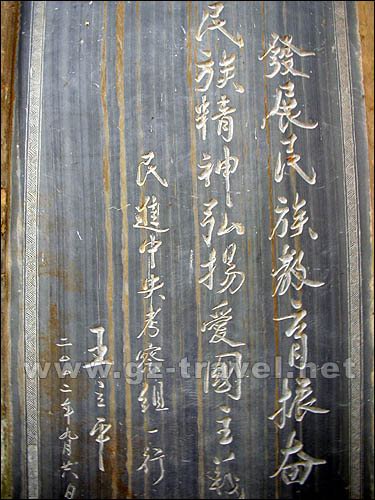 發展民族教育振奋
民族精神弘揚愛國主義
民進中央考察組一行
王立平
二〇〇二年九月廿八日
www.gz-travel.net